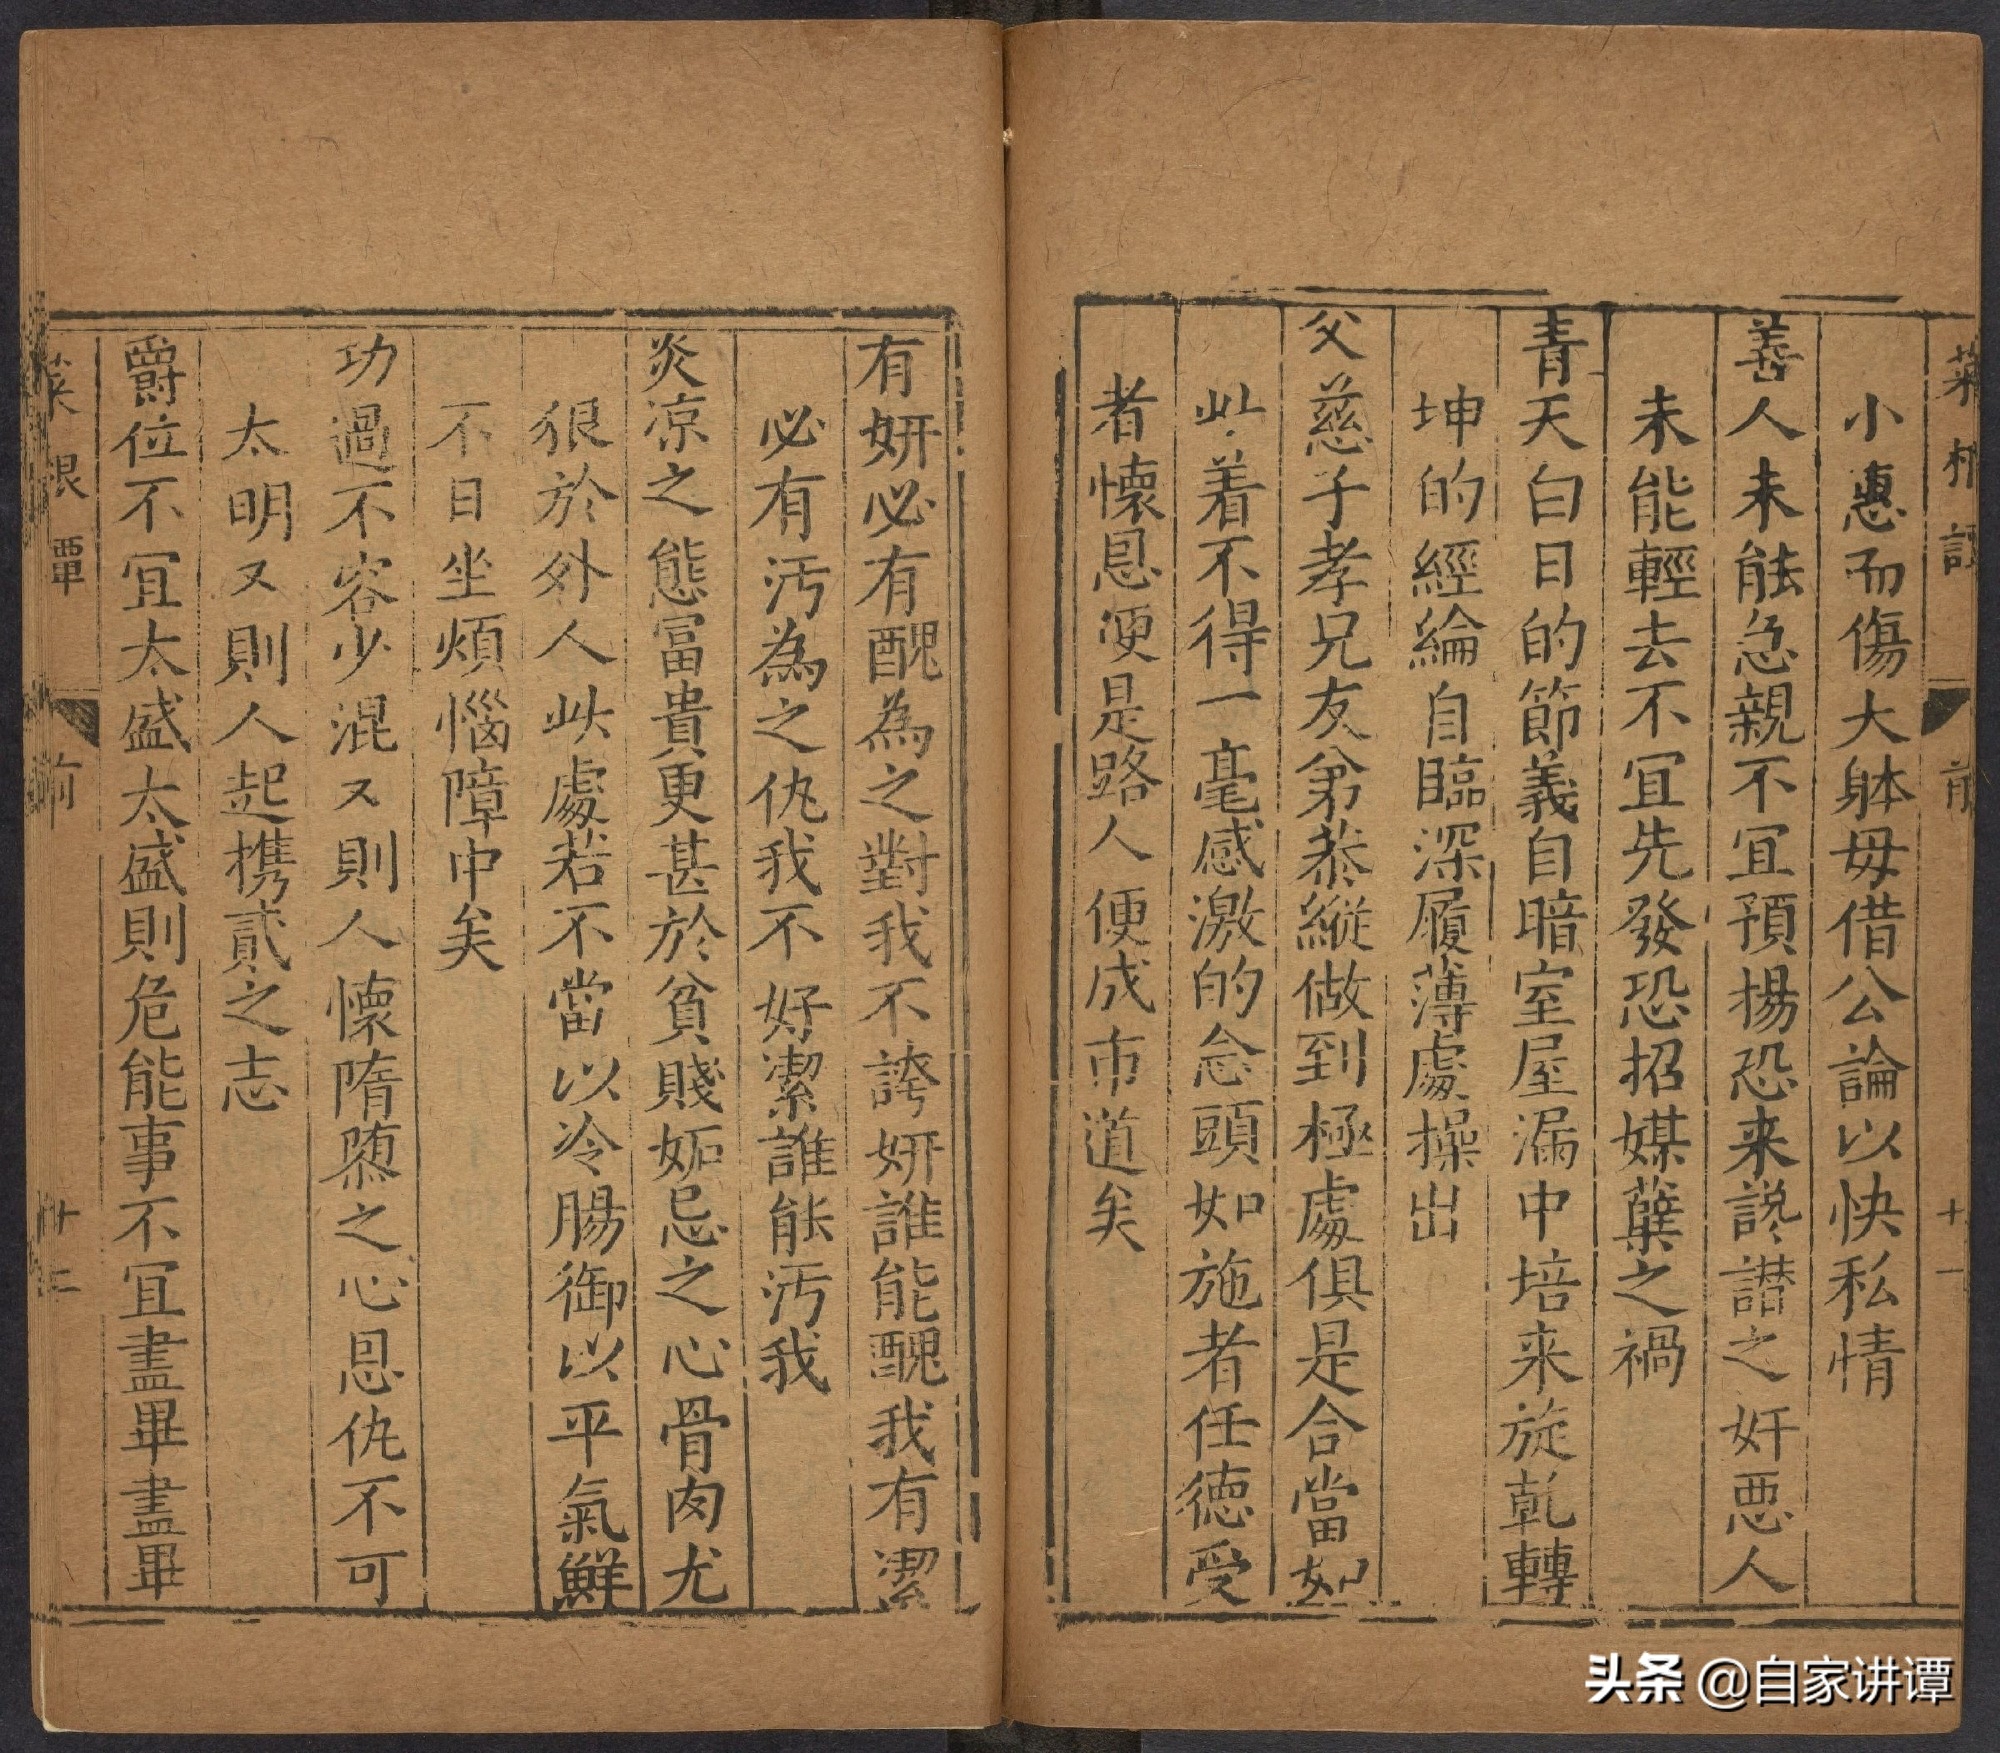 菜根譚 前 十一
小惠而傷大躰毋借公論以快私情
善人未能急親不宜預揚恐来讒譖之奸悪人
未能輕去不宜先發恐招媒蘖之禍
青天白日的節義自暗室屋漏中培来旋乹轉
坤的經綸自臨深履薄處操出
父慈子孝兄友弟恭縱做到極處俱是合當如
此着不得一毫感激的念頭如施者任德受
者懷恩便是路人便成市道矣
有妍必有醜為之對我不誇妍誰能醜我有潔
必有汚為之仇我不好潔誰能汚我
炎凉之態富貴更甚於貧賤妬忌之心骨肉尤
狠於外人此處若不當以冷腸御以平氣鮮
不日坐煩惱障中矣
功過不容少混又則人懷隋堕之心恩仇不可
太明又則人起携貳之志
爵位不宜太盛太盛則危能事不宜盡畢盡畢
菜根譚 前 十二
头条 @自家讲谭